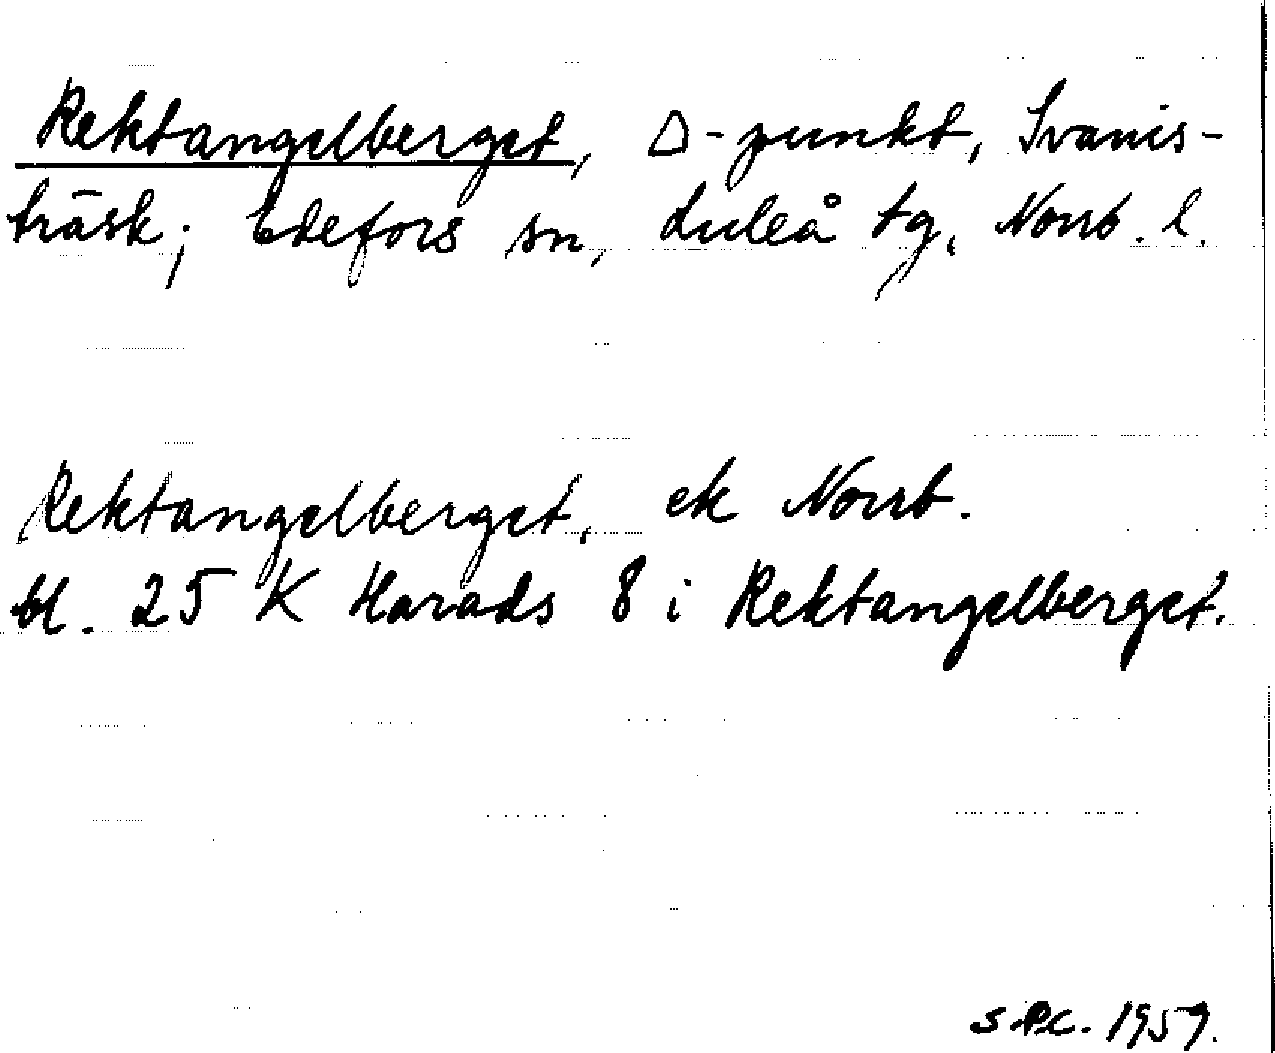 Rektangelberget, △-punkt, Svanis-
träsk; Edefors sn, Luleå tg, Norrb. l.
Rektangelberget, ek Norrb.
bl. 25 K Harads 8 i Rektangelberget.
1959.